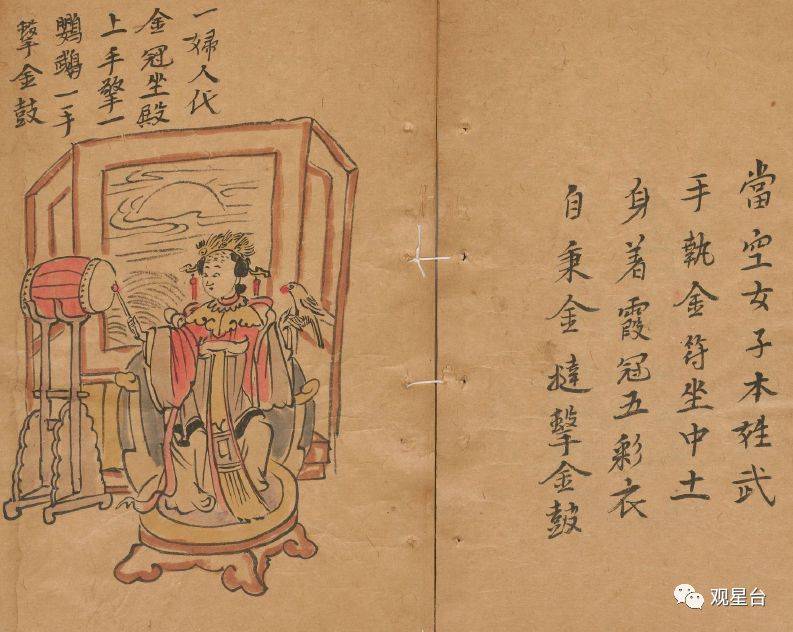 當空女子本姓武
手執金符坐中土
身着霞冠五彩衣
自秉金撻擊金鼓
一婦人代
金冠坐殿
上手擎一
鸚鵡一手
擊金鼓
观星台